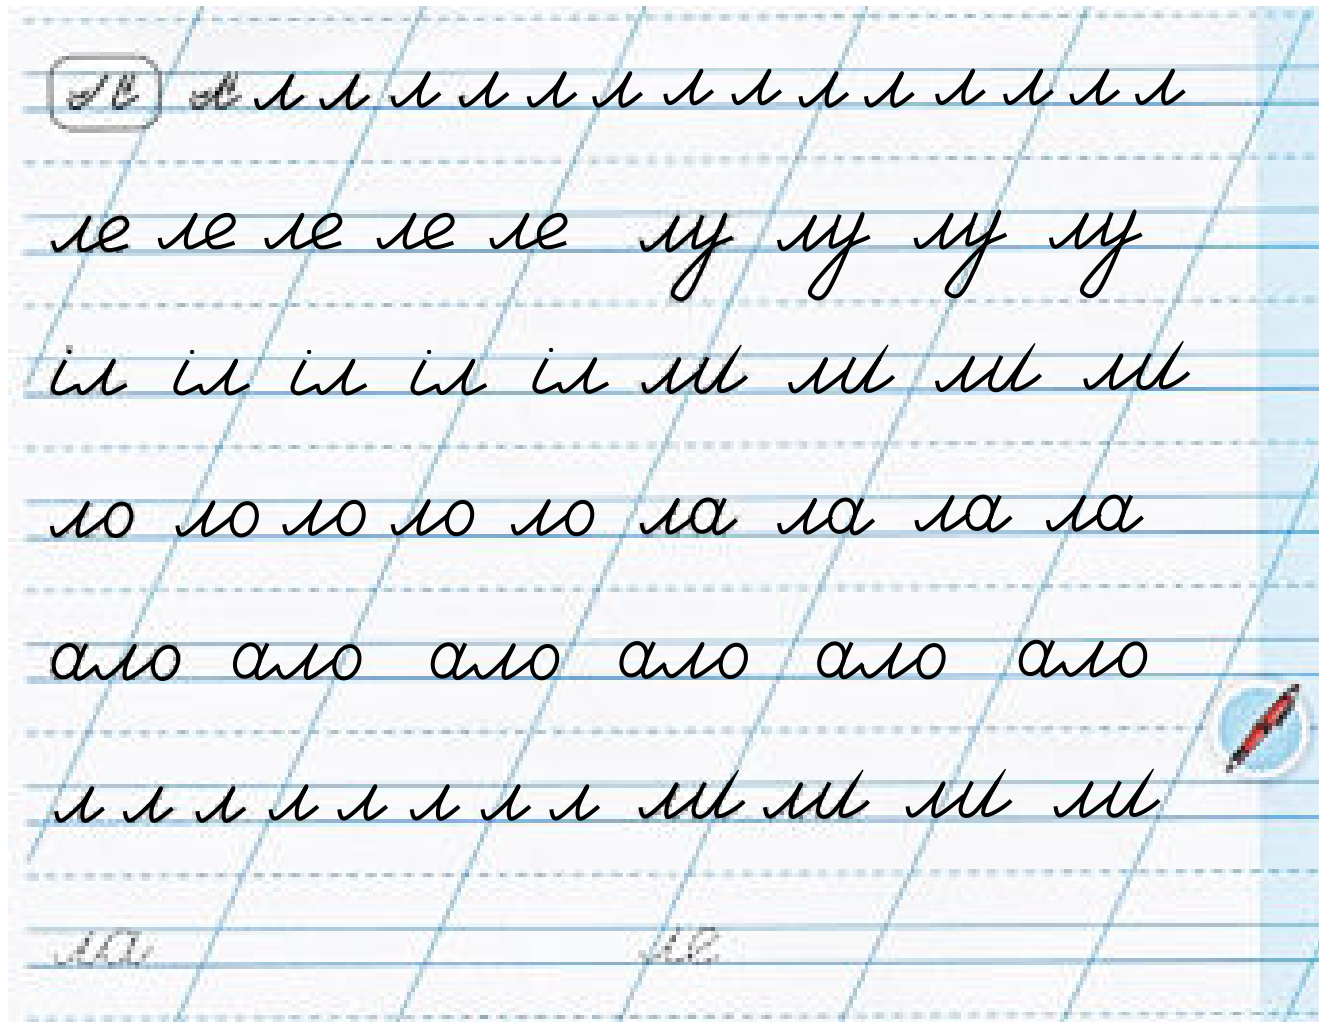 л л л л л л л л л л л л л л л
ле ле ле ле ле лу лу лу лу
іл іл іл іл іл ли ли ли ли
ло ло ло ло ло ла ла ла ла
ало ало ало ало ало ало
л л л л л л л л ли ли ли ли
ла ле